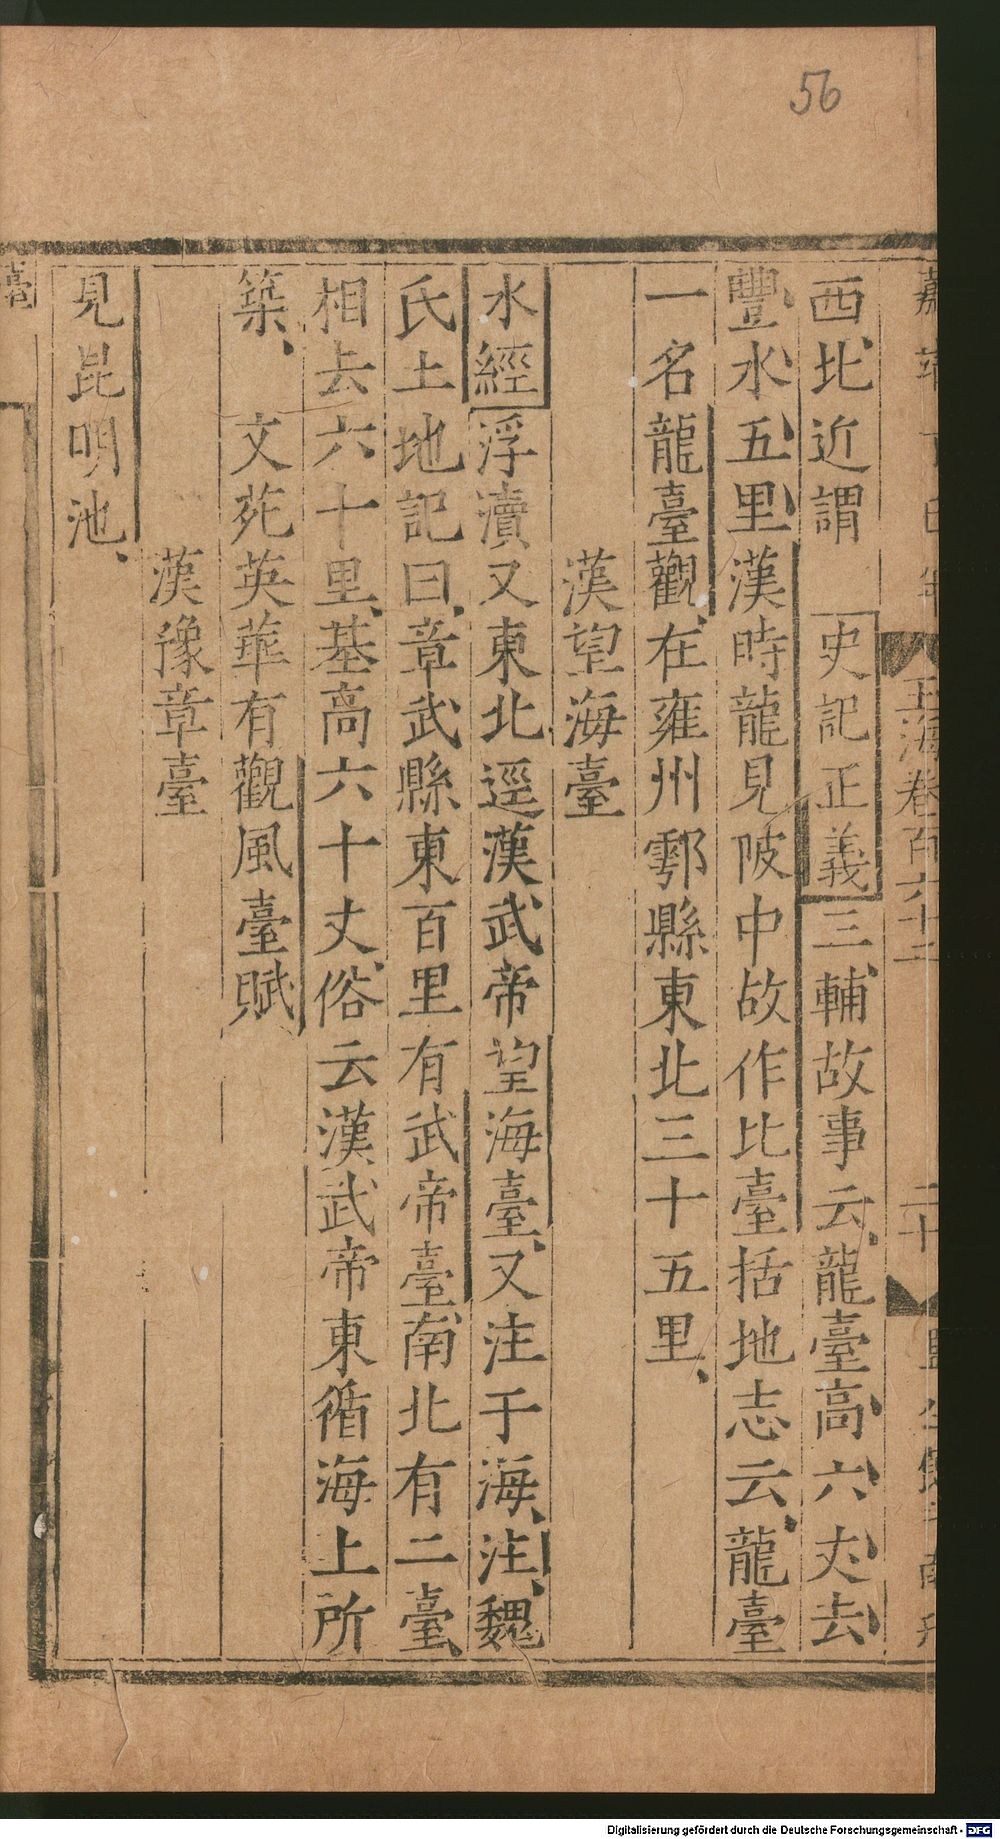 56
玉海卷百六十二
二十
西北近謂 史記正義三輔故事云龍臺高六丈去
豐水五里漢時龍見陂中故作比臺括地志云龍臺
一名龍臺觀在雍州鄠縣東北三十五里、
漢望海臺
水經浮瀆又東北逕漢武帝望海臺、又注于海、注、魏
氏土地記曰、章武縣東百里有武帝臺南北有二臺、
相去六十里、基高六十丈、俗云漢武帝東循海上所
築、 文苑英華有觀風臺賦
漢豫章臺
見昆明池、
臺
Digitalisierung gefördert durch die Deutsche Forschungsgemeinschaft - DFG